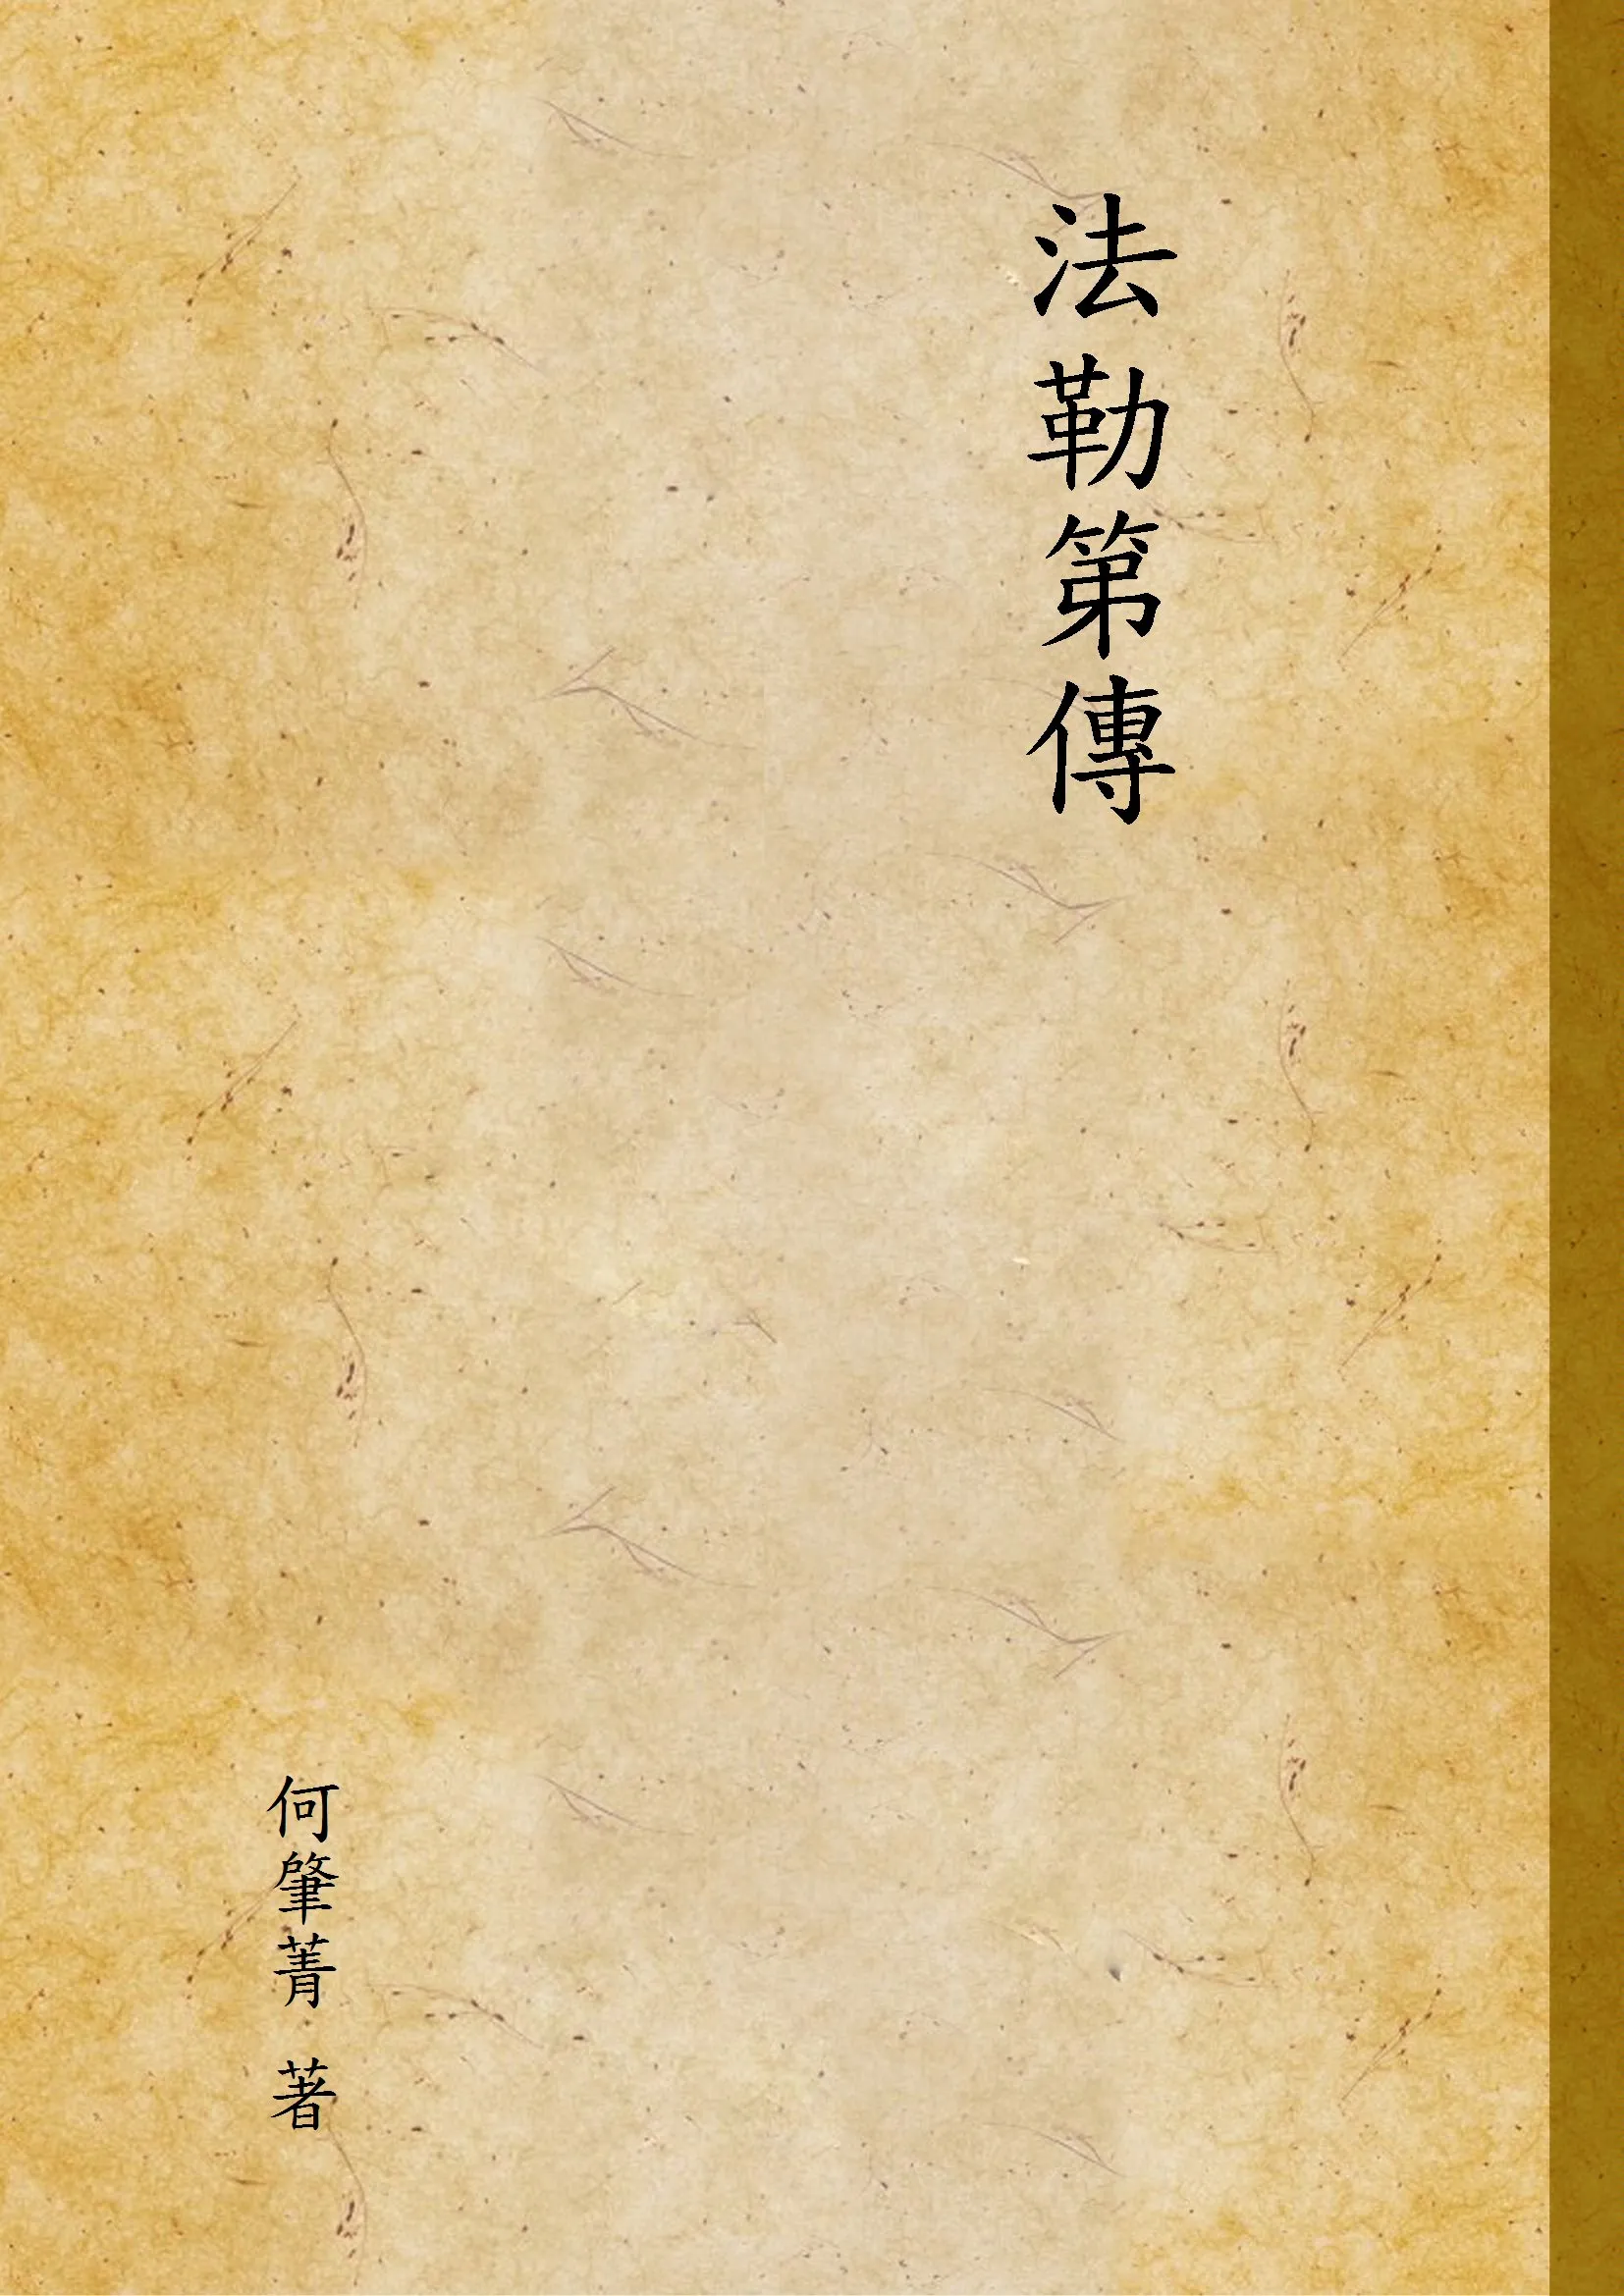 法勒第傳
何肇菁 著